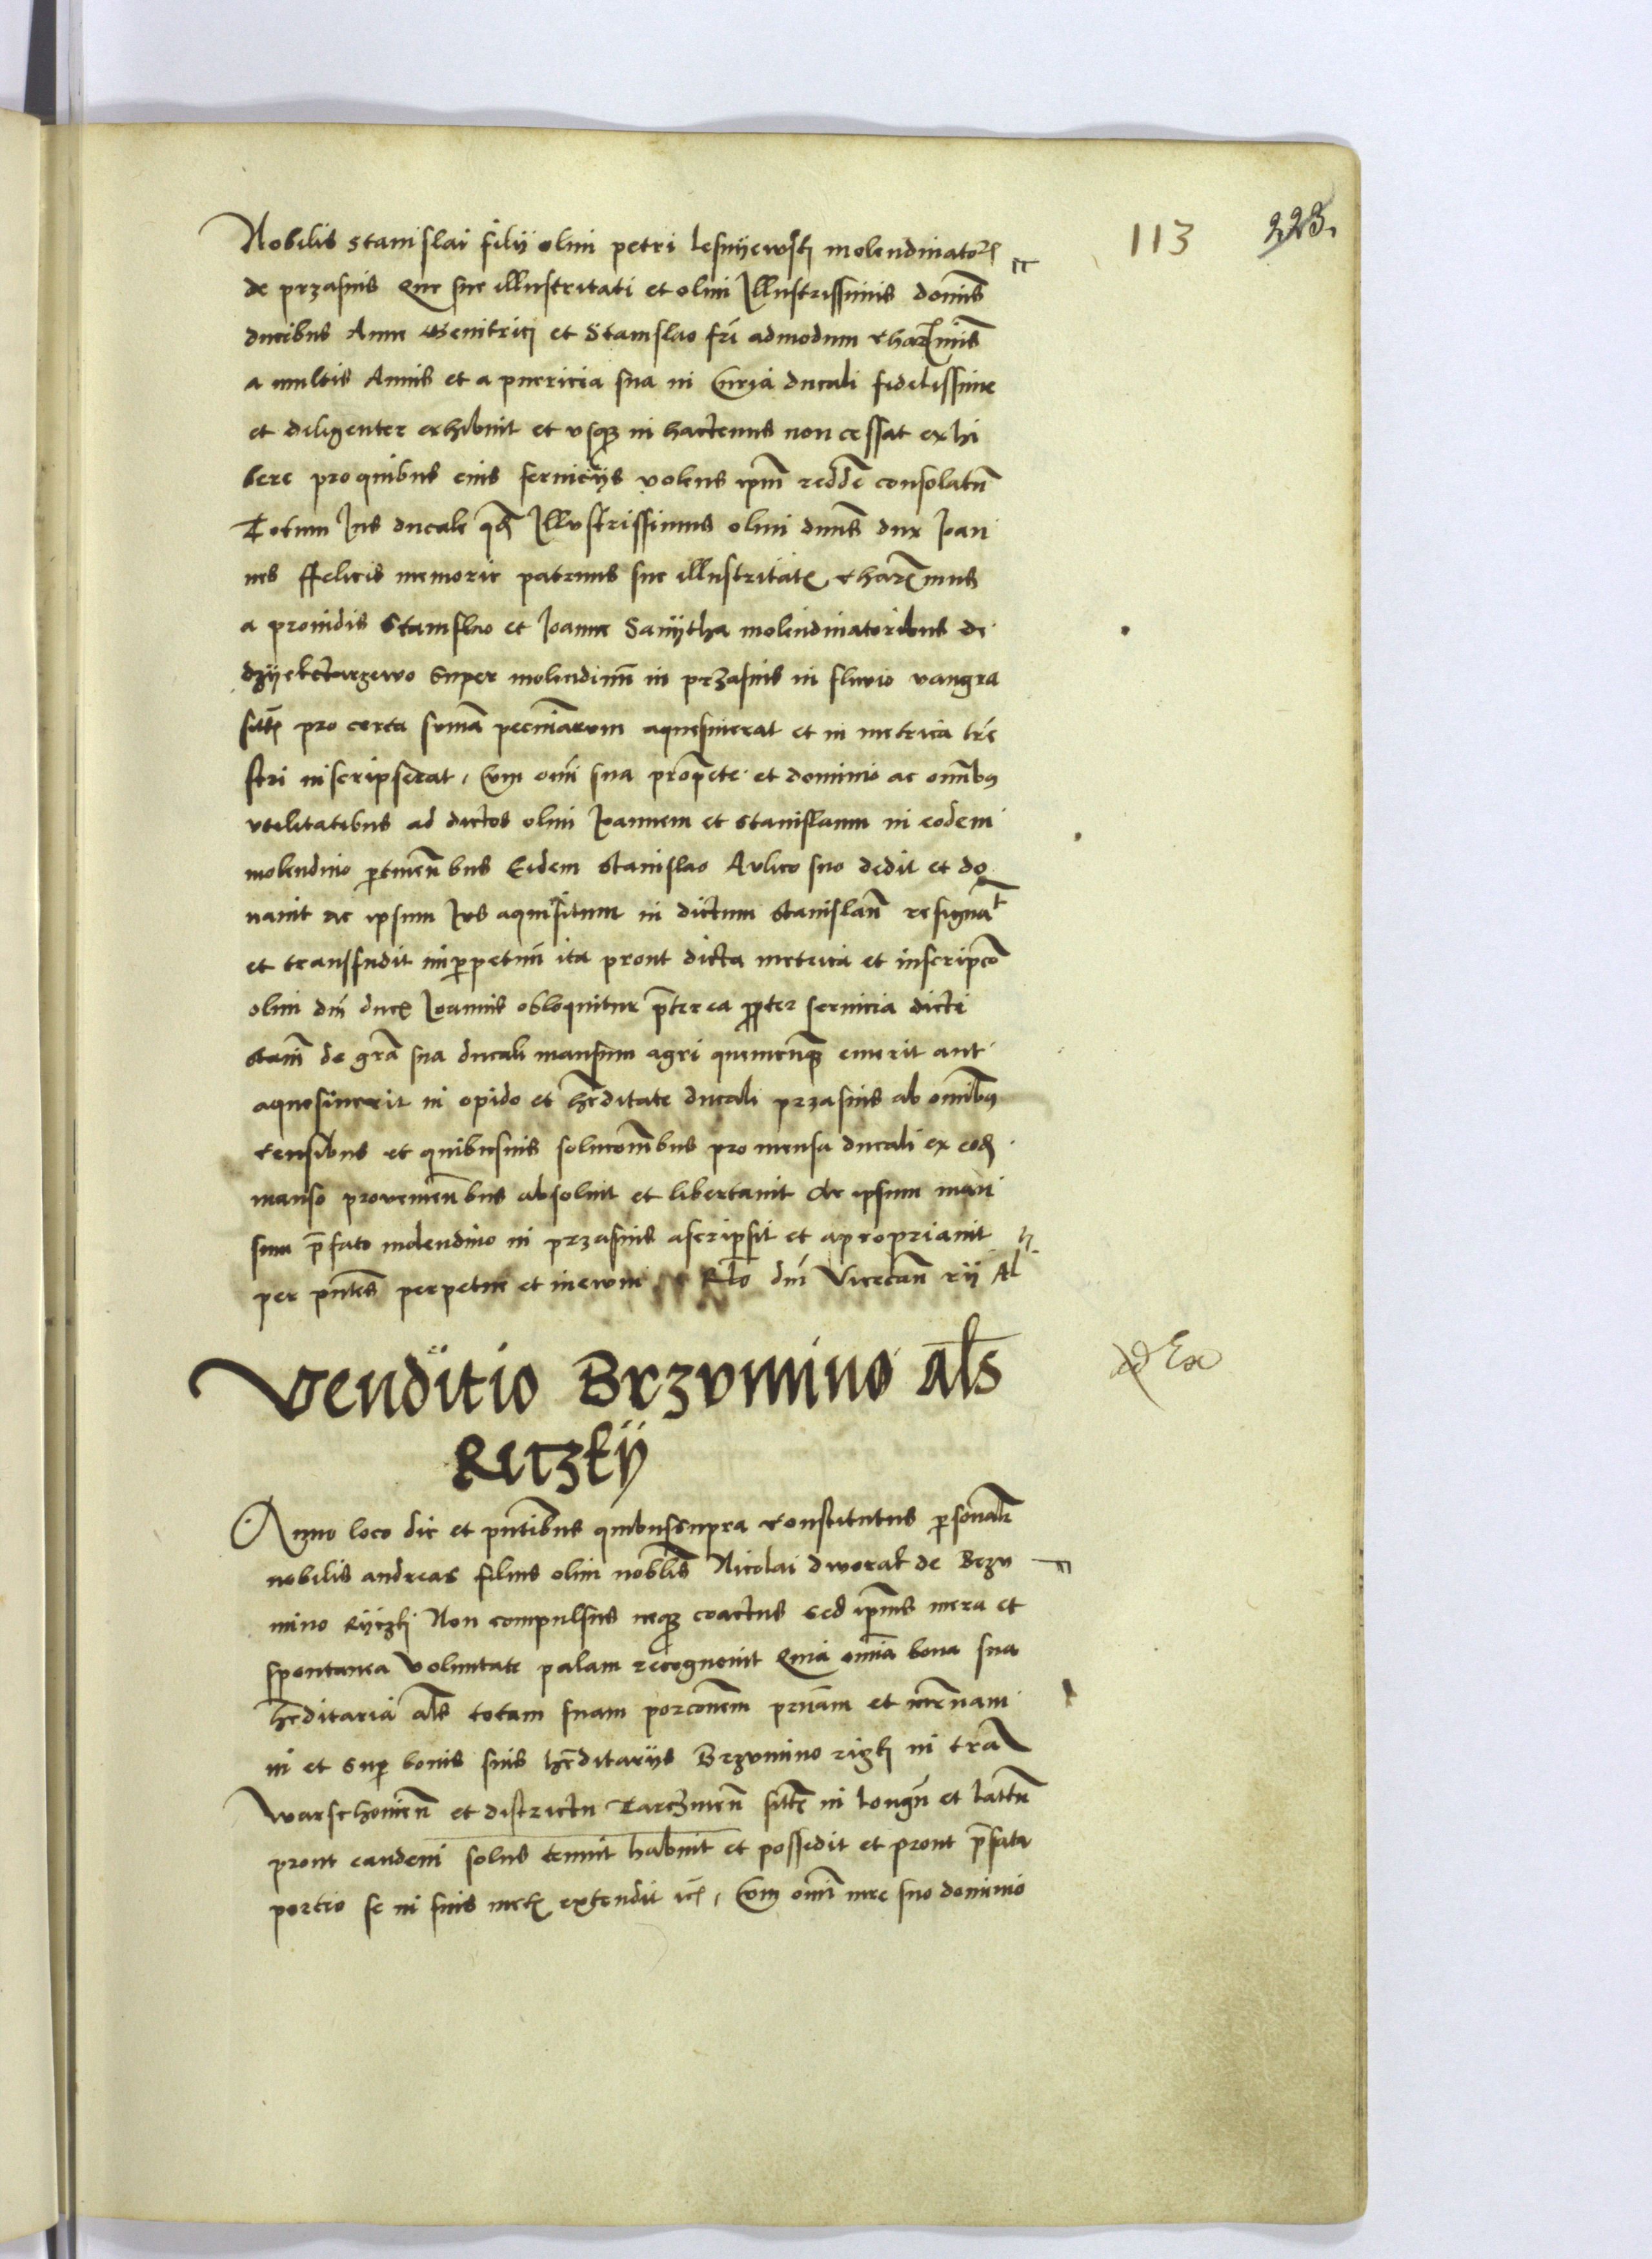 113 223.
Nobilis stanislai filii olim petri lesnyewsky molendinatoris
de przasnis Que sue illustritati et olim Illustrissimis dominis
ducibus Anne Genitrici et Stanislao fri admodum charimis
a multis Annis et a puericia sua in Curia ducali fidelissime
et diligenter exhibuit et usque in hactenus non cessat exhi
bere pro quibus eius seruicijs volens ipm redde consolatu
Totum Jus ducale qd Illustrissimus olim dnus dux Joan
nes ffelicis memorie patruus sue illustritatis charimus
a prouidis Stanislao et Joanne Sanytha molendinatoribus de
super molendinu in przasnis in fluvio vangra
pro certa suma pecuniarum aquesiuerat et in metrica tre
stri inscripserat, Cum omi sua propete et dominio ac omibus
utilitatibus ad dictos olim Joannem et Stanislaum in eodem
molendino ptinenbus Eidem Stanislao Aulico suo dedit et do
nauit ac ipsum Jus aquisitum in dictum Stanislau resignat
et transfudit inperpetuu ita prout dicta metrica et inscripco
olim dni ducis Joannis obloquitur preterea propter seruicia dicti
Stani de gra sua ducali mansum agri quemcunque emerit aut
aquesiuerit in opido et hereditate ducali przasnis ab omibus
censibus et quibusuis solucoibus pro mensa ducali ex eod
manso prouenienbus absoluit et libertauit Ac ipsum man
sum prefato molendino in przasnis ascripsit et apropriauit
per pntes perpetue et in ewm Rlo dni Vicecan rij Al
Venditio Brzumino als
Ritzky
Ex
Anno loco die et pntibus quibus supra Constitutus psonalr
nobilis andreas filius olim noblis Nicolai dworak de Brzu
mino Ryczky Non compulsus neque coactus sed ipius mera et
spontanea Voluntate palam recognouit Quia omia bona sua
hereditaria als totam suam porcoem pnam et mrnam
in et sup bonis suis hereditarijs Brzumino in tra
Warschouien et districtu Tarczinen sitte in longu et lattu
prout eandem solus tenuit habuit et possedit et prout prefata
portio se in suis metis extendit Cum omi iure suo dominio